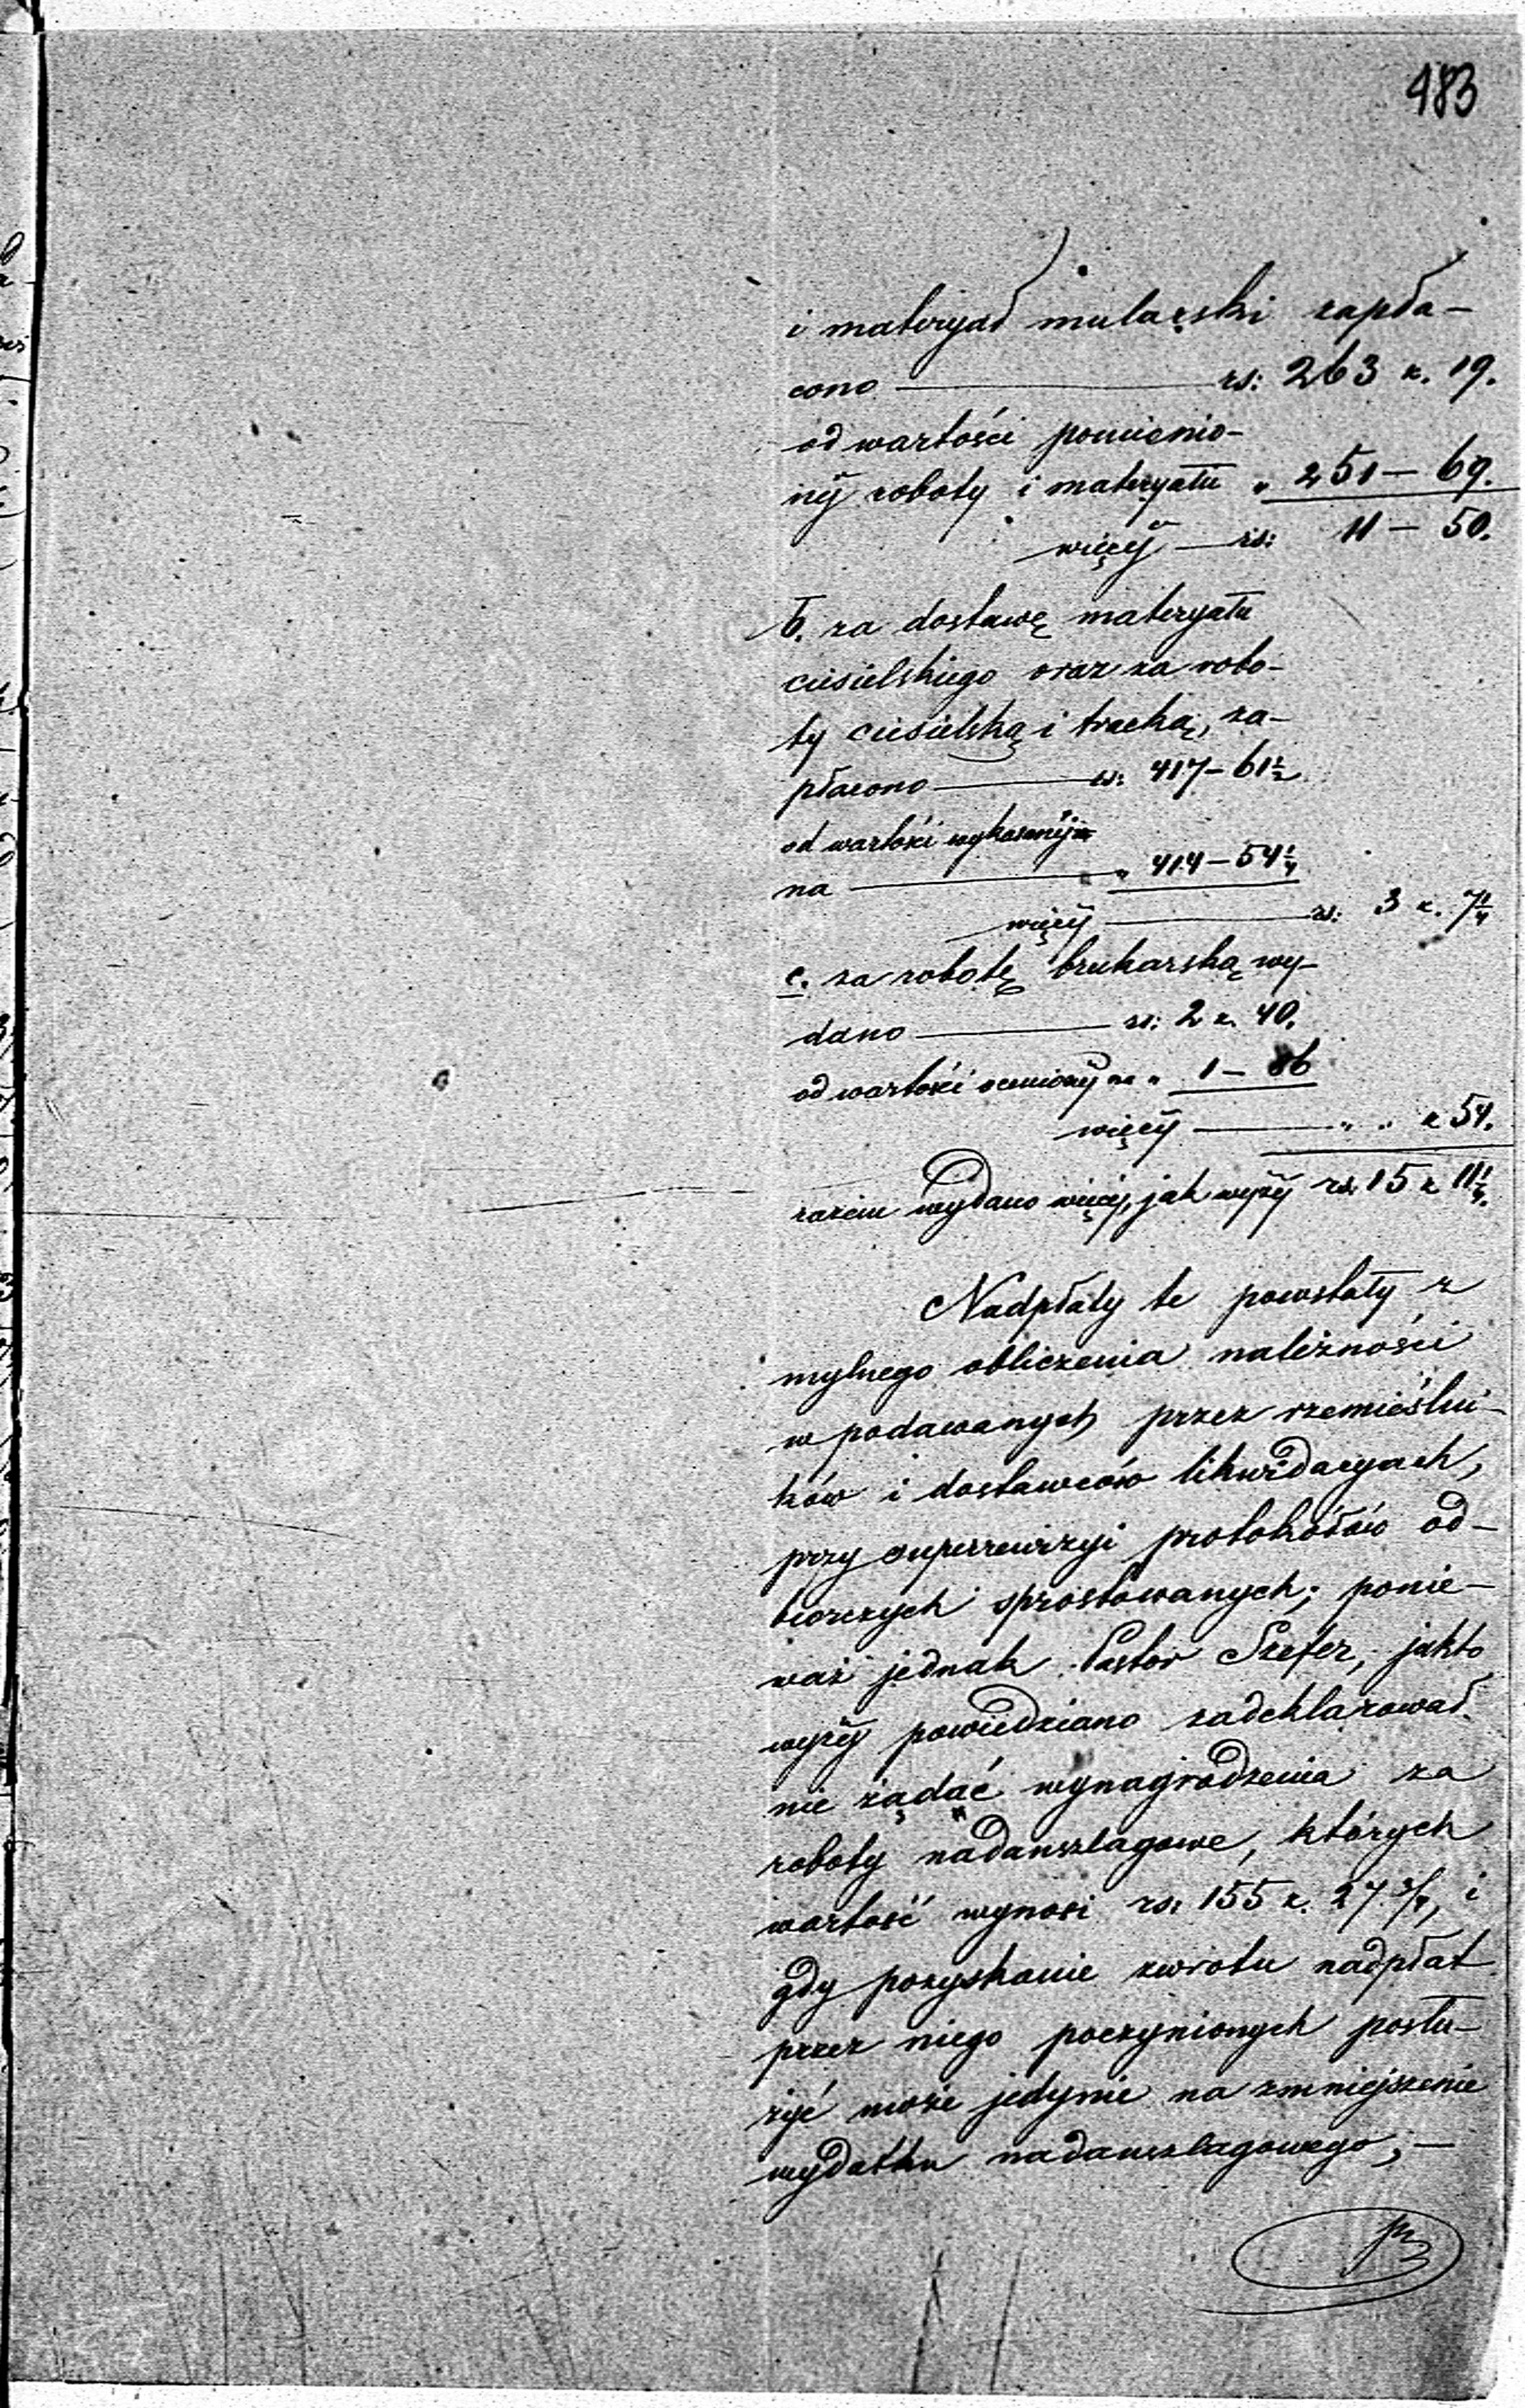 483
i materyał mularski zapła-
cono — rs: 263 k. 19.
od wartości pomienio-
nej roboty i materyału „ 251 — 69.
więcej — rs: 11 — 50.
b. za dostawę materyału
ciesielskiego oraz za robo-
ty ciesielską i tracką, za-
płacono — rs: 417 — 61½
od wartości wykazanej
na — „ 414 — 54¼
więcej — rs: 3 k. 7¼
c. za robotę brukarską wy-
dano — rs: 2 k. 40.
od wartości ocenionej na „ 1 — 86
więcej — „ „ k 54.
razem wydano więcej, jak wyżej rs. 15 k 11¼.
Nadpłaty te powstały z
mylnego obliczenia należności
w podawanych przez rzemieślni-
ków i dostawców likwidacyach,
przy superrewizyi protokółów od-
biorczych sprostowanych; ponie-
waż jednak Pastor Szefer, jak to
wyżej powiedziano zadeklarował
nie żądać wynagrodzenia za
roboty nadanszlagowe, których
wartość wynosi rs: 155 k. 27 3/4, i
gdy pozyskanie zwrotu nadpłat
przez niego poczynionych posłu-
żyć może jedynie na zmniejszenie
wydatku nadanszlagowego, —